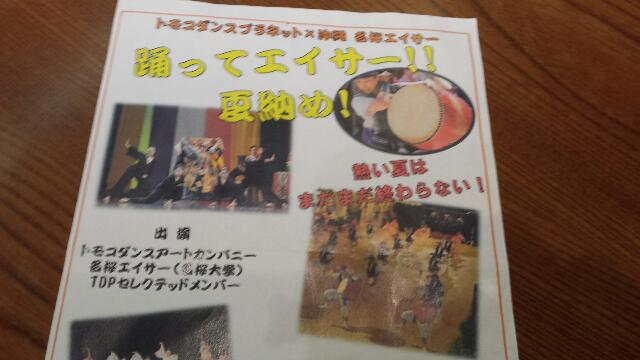 トモコダンスプラネット×沖縄 名桜エイサー
踊ってエイサー!!
夏納め!
熱い夏は
まだまだ終わらない!
出 演
トモコダンスアートカンパニー
名桜エイサー(名桜大学)
TDPセレクテッドメンバー